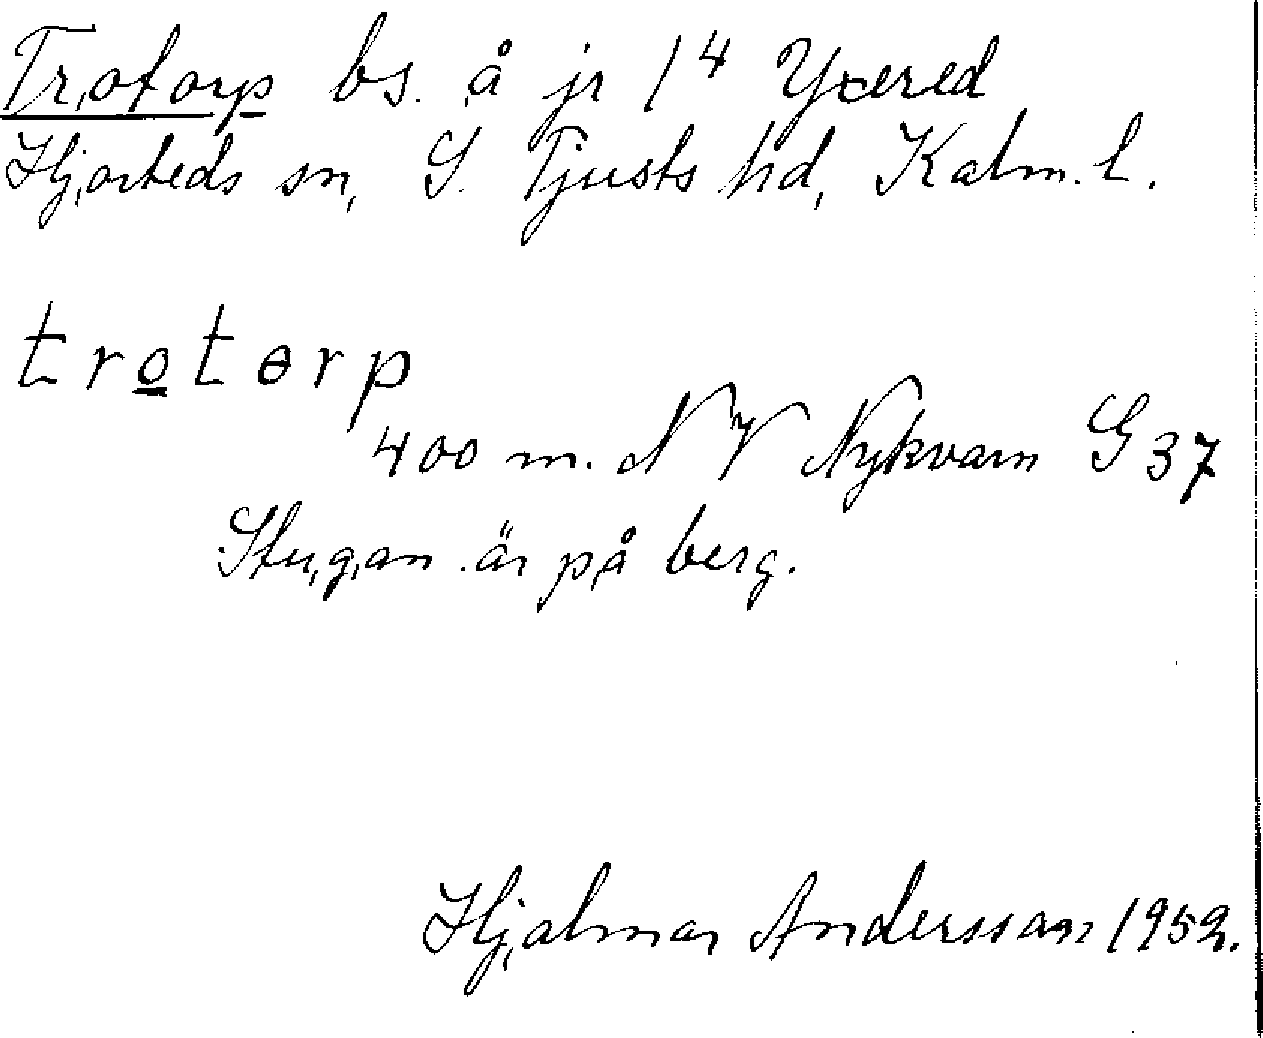 Trotorp bs. å jr 1⁴ Yxered
Hjorteds sn, S. Tjusts hd, Kalm. l.
trotɵrp
400 m. NV Nykvarn G 37
Stugan är på berg.
Hjalmar Andersson 1952.